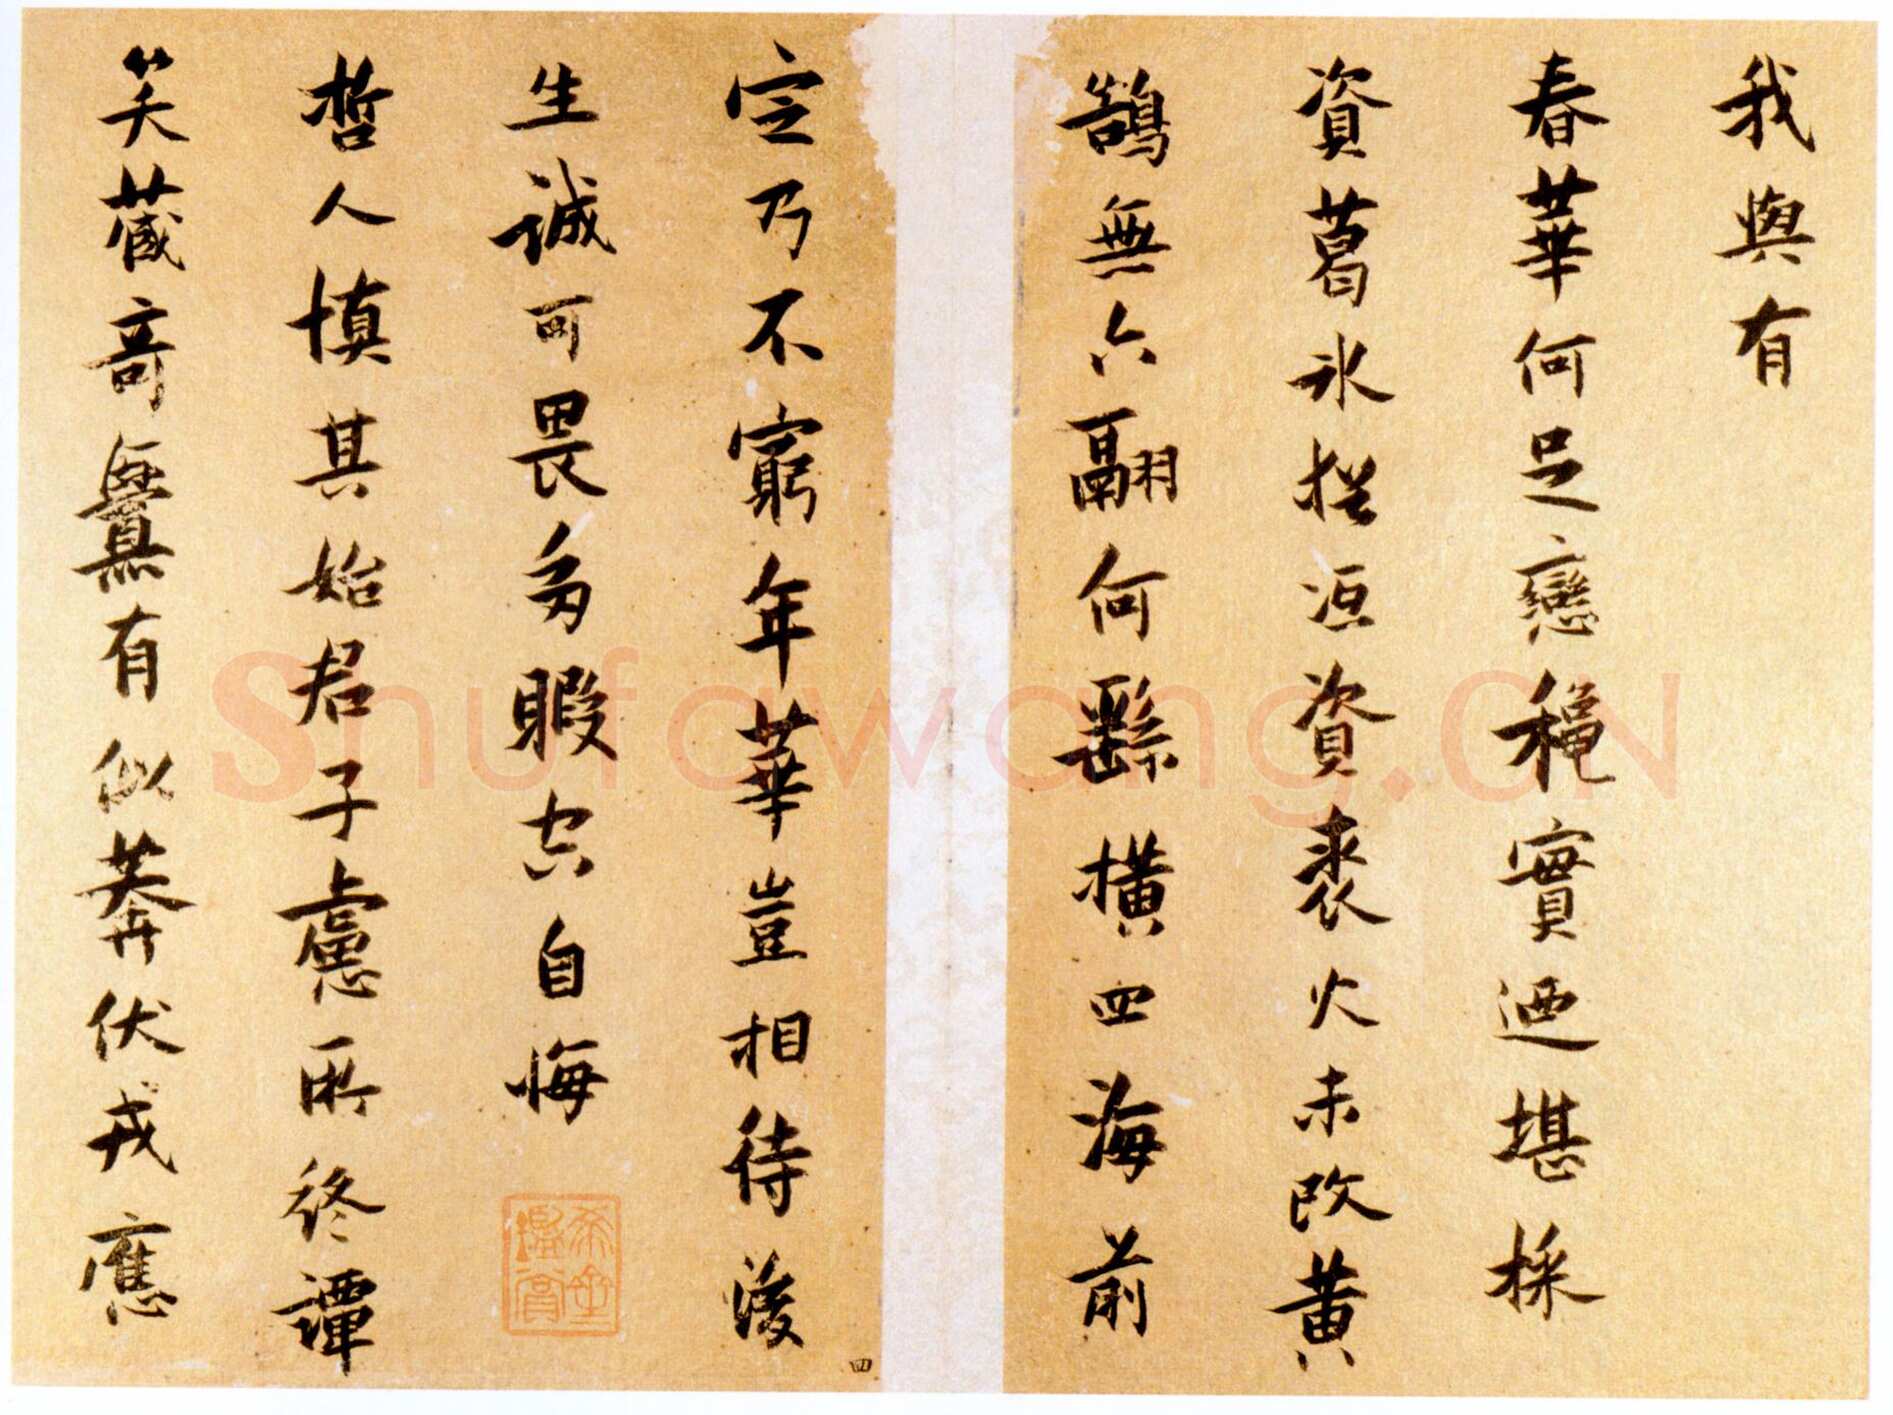 我與有
春華何足戀穐實迺堪採
資葛氷沍資裘火未改黄
鵠無六翮何繇橫四海前
定乃不窮年華豈相待後
生誠可畏多暇空自悔
哲人慎其始君子慮所終譚
笑藏奇釁有似莽伏戎應
四
Shufawang.CN